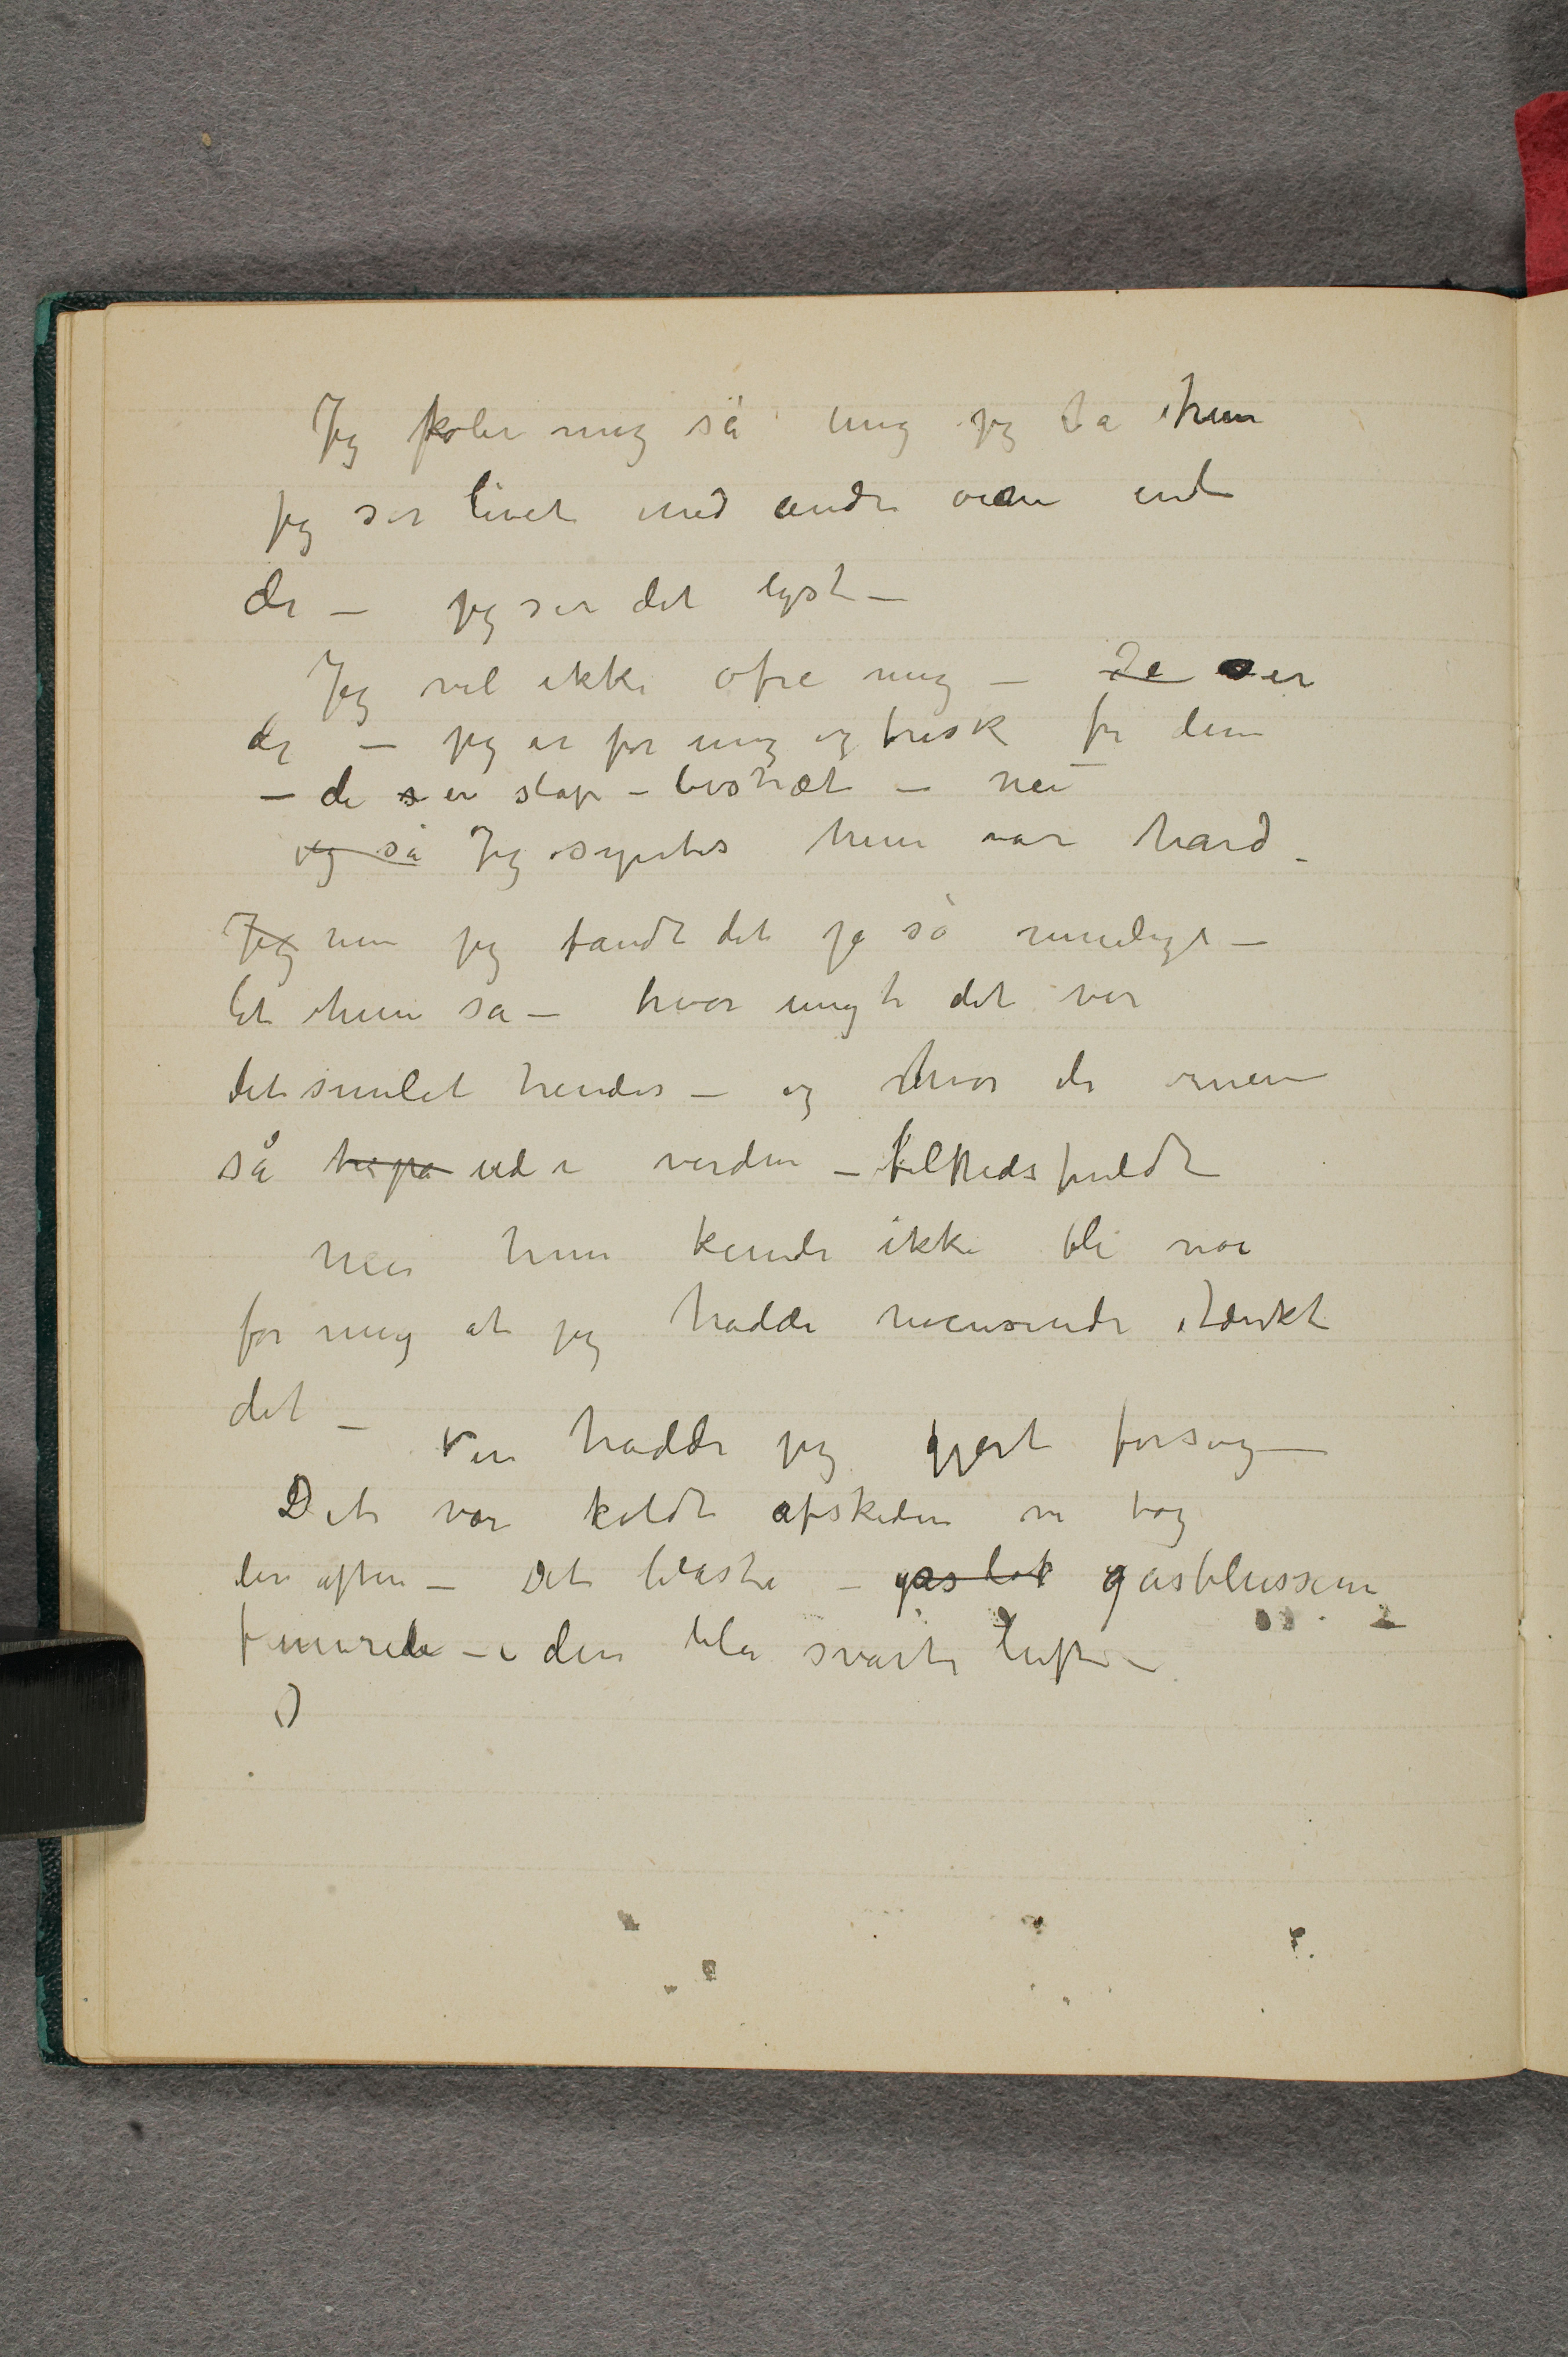 Jeg føler mig så ung jeg sa hun
jeg ser livet med andre øine end
de – jeg ser det lyst –
Jeg vil ikke ofre mig – De ser
de – jeg er for ung og frisk for dem
– de er slap – livstræt – nei
og så Jeg syntes hun var hård –
Jeg men jeg fandt det jo så rimeligt –
let hun sa – hvor ungt det var
det smilet hendes – og hvor de øinene
så håpe ud i verden – tillidsfuldt
nei hun kunde ikke bli noe
for mig at jeg hadde noensinde tænkt
det –
Men hadde jeg gjort forsøg –
Det var koldt afskeden vi tog
den aften – Det blæste – gasblussene
i den blå svarte luft –